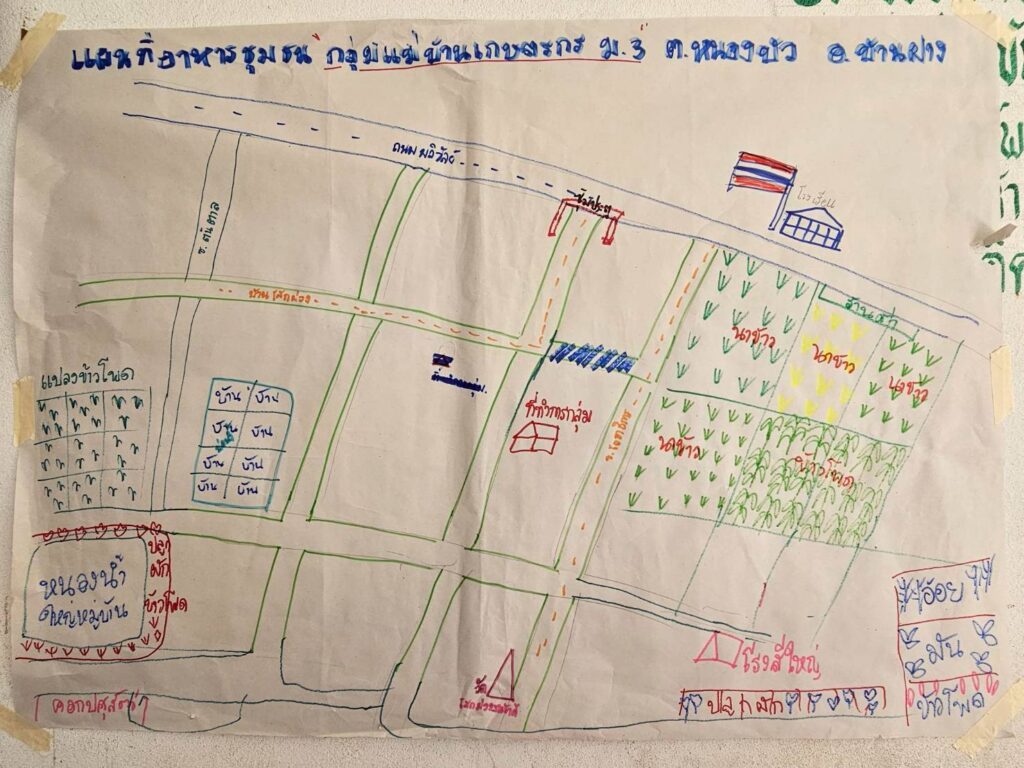 แผนที่อาหารชุมชน กลุ่มแม่บ้านเกษตรกร ม.3 ต.หนองบัว อ.บ้านฝาง
ถนนมลิวัลย์
ซุ้มประตู
โรงเรียน
ซ. ต้นตาล
ร้านค้า
นาข้าว
นาข้าว
นาข้าว
นาข้าว
ข้าวโพด
ที่ทำการกลุ่ม
แปลงข้าวโพด
บ้าน บ้าน
บ้าน บ้าน
บ้าน บ้าน
บ้าน บ้าน
หนองน้ำ
ใหญ่หมู่บ้าน
ปลูก
ผัก
ข้าวโพด
คอกปศุสัตว์
วัด
โรงสีใหญ่
ปลูกผัก
อ้อย
มัน
ข้าวโพด